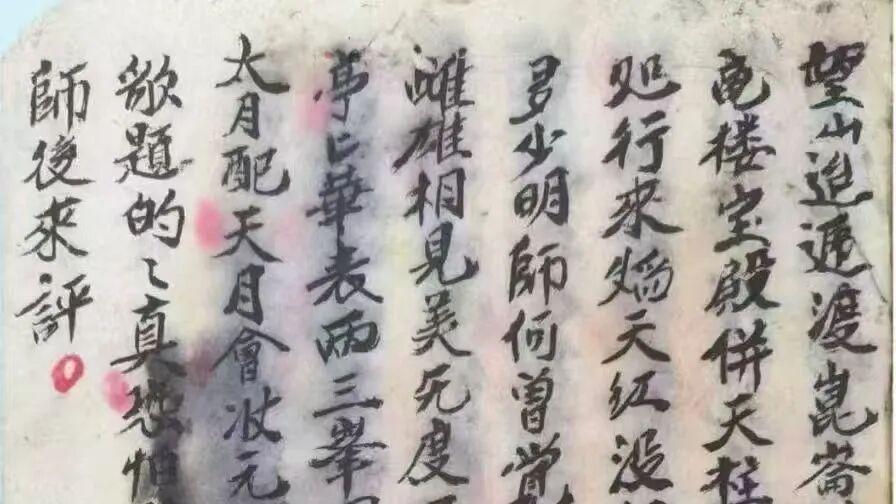 望山迢遞渡崑崙
电楼宝殿併天柱
处行來焰天红没
多少明師何曾覚
雌雄相見美无度
亭亡華表兩三峯
太月配天月會
歌題的〻真恐怕
師後來評